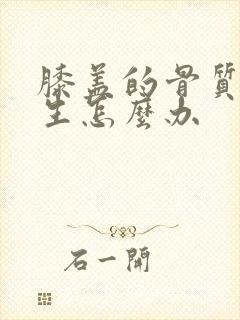 膝盖的骨質
生怎麼办
石一開